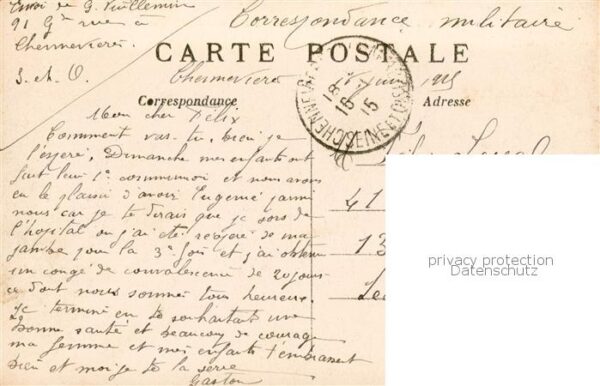 Envoi de G. Vuillemin
91 Gde rue à
Chennevières
S. et O.
Correspondance militaire
CARTE POSTALE
Chennevières juin 1915
Correspondance
Adresse
18
15
SEINE-ET-OISE
Mon cher Félix
Comment vas-tu, bien je
l'espère, Dimanche mes enfants ont
fait leur 1e communion et nous avons
eu le plaisir d'avoir Eugénie parmi
nous car je te dirais que je sors de
l'hopital ou j'ai été réopéré de ma
jambe pour la 3e fois et j'ai obtenu
un congé de convalescence de 20 jours
ce dont nous sommes tous heureux.
Je termine en te souhaitant une
bonne santé et beaucoup de courage
ma femme et mes enfants t'embrassent
bien et moi je te la serre
Gaston
41
13
privacy protection
Datenschutz